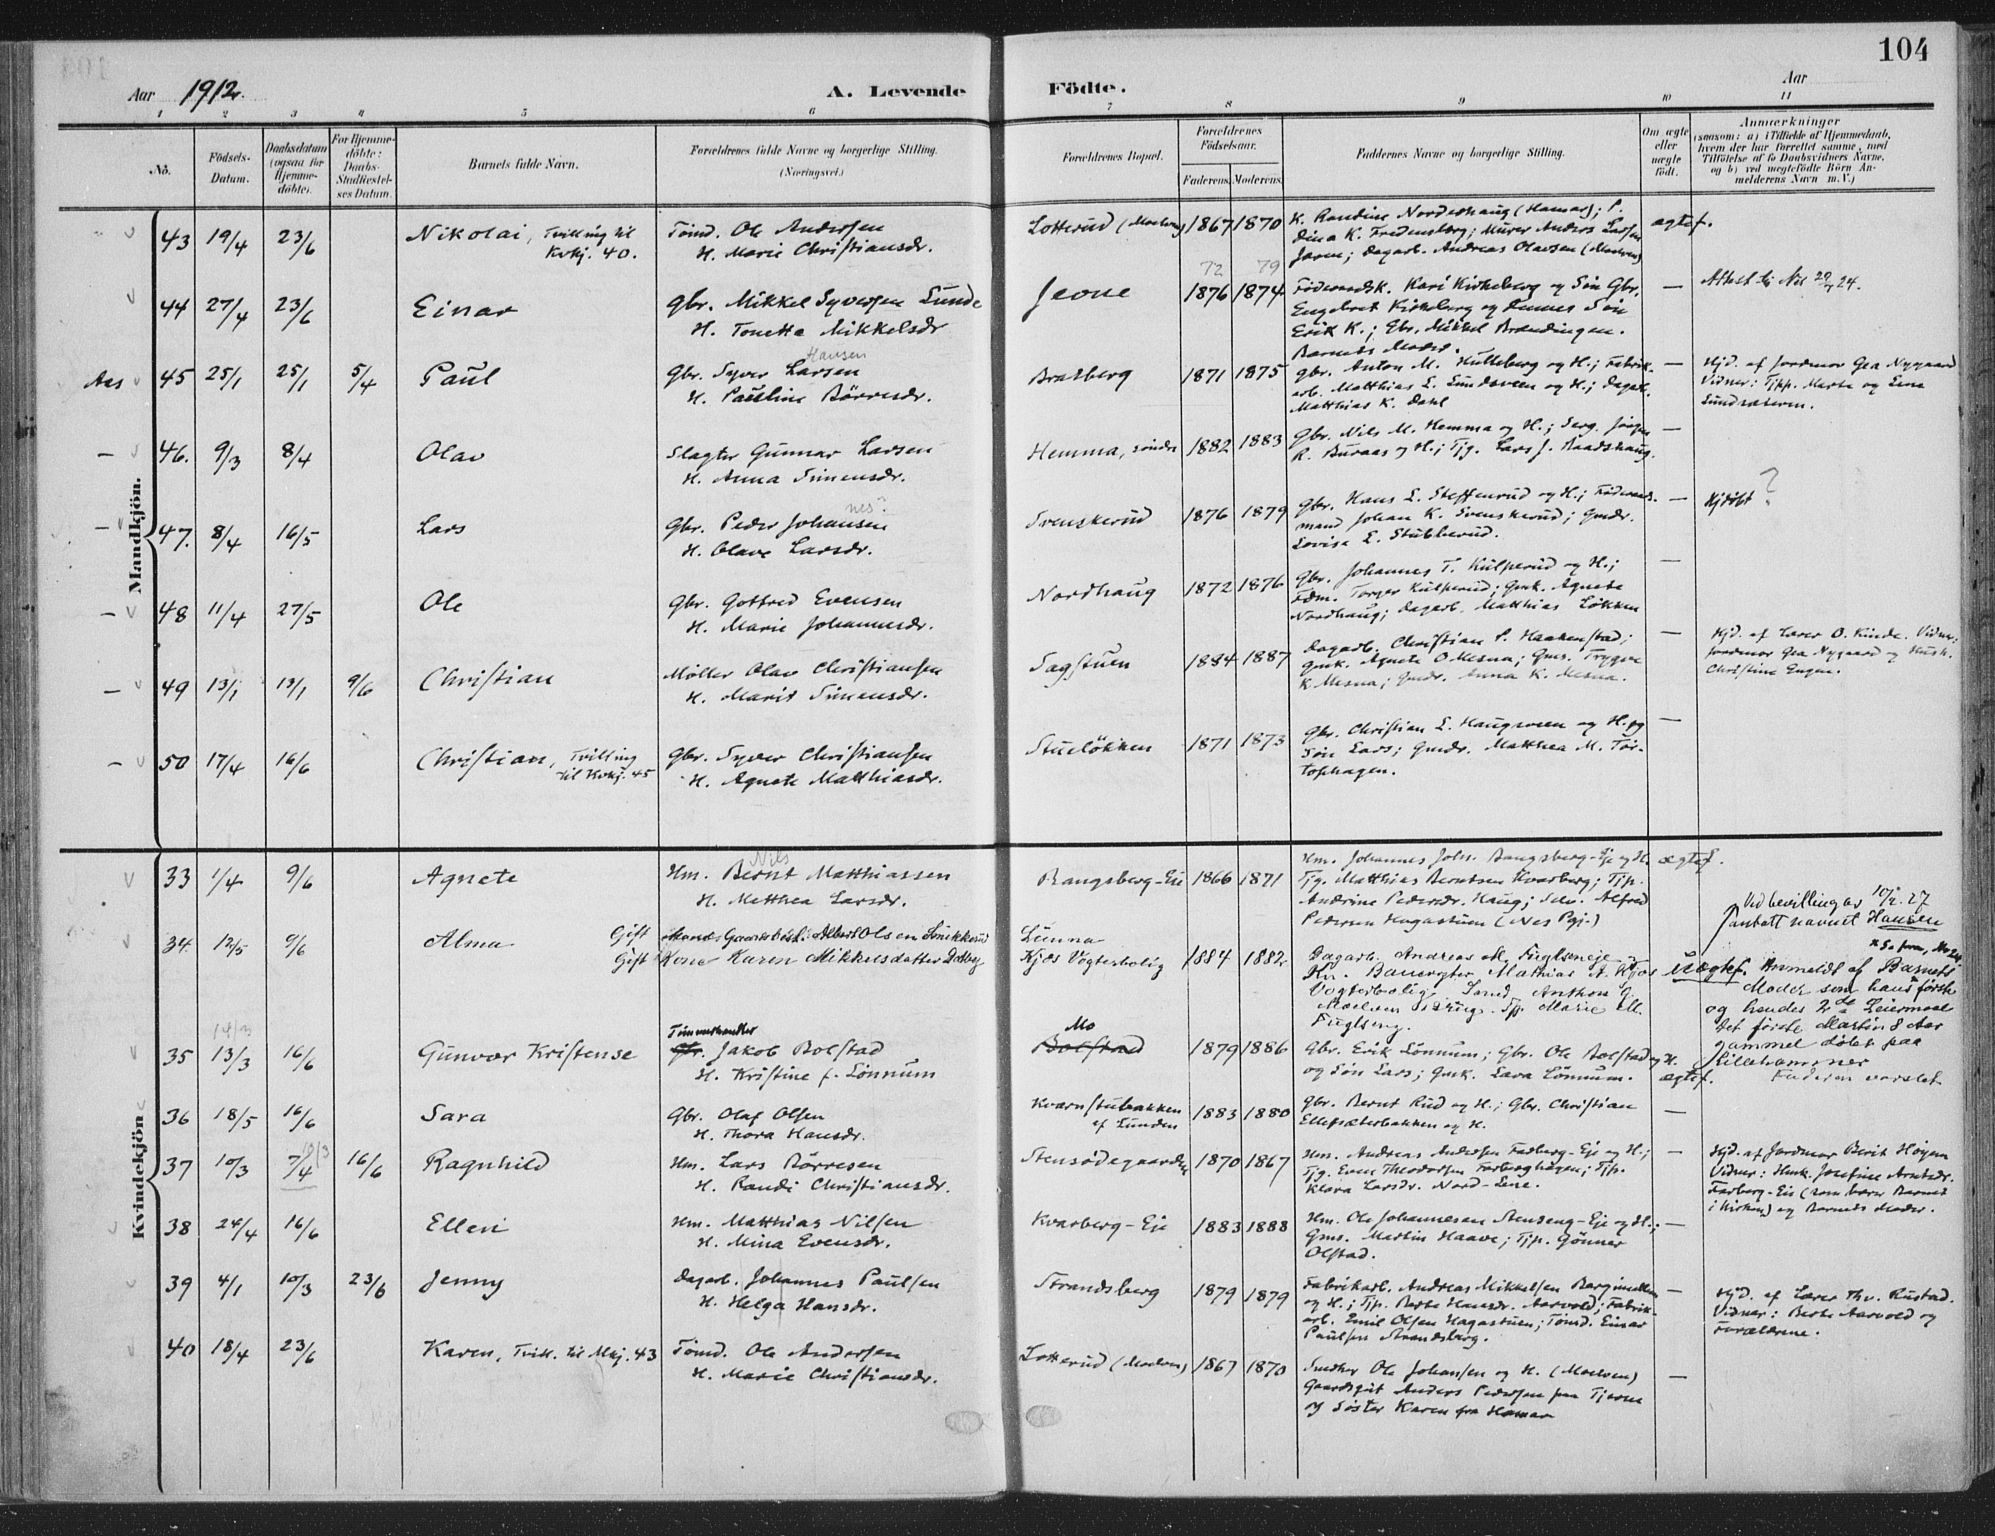 104
Aar 1912.
A. Levende Födte.
Aar
1 2 3 4 5 6 7 8 9 10 11
No.
Födsels-Datum.
Daabsdatum (ogsaa for Hjemme-döbte).
For Hjemme-döbte: Daabs-Stadfæstel-ses Datum.
Barnets fulde Navn.
Forældrenes fulde Navne og borgerlige Stilling.
(Næringsvei.)
Forældrenes Bopæl.
Forældrenes Födselsaar.
Faderens. Moderens.
Faddernes Navne og borgerlige Stilling.
Om ægte eller uægte født.
Anmærkninger
(saasom: a) i Tilfælde af Hjemmedaab,
hvem der har forrettet samme, med
Tilföielse af to Daabsvidners Navne,
og b) ved uægtefödte Börn An-
melderens Navn m. V.)
Mandkjön.
43 19/4 23/6 Nikolai, Tvilling til Kvkj. 40. Tömd. Ole Andersen
H. Marie Christiansdr.
Lotterud (Moelven) 1867 1870 K. Randine Nordeshaug (Hamar); P.
Dina K. Fredensberg; Murer Anders Larsen
Javen; Dagarb. Andreas Olausen (Moelven)
ægtef.
44 27/4 23/6 Einar Gbr. Mikkel Syversen Lunde
H. Tonetta Mikkelsdr
72 79
1876 1874 Föderaadsk. Kari Kirkeberg og Sön Gbr.
Engebret Kirkeberg og dennes Sön
Erik K.; Gbr. Mikkel Brændingen.
Barnets Moder.
— Attest
Aas 45 25/1 25/1 5/4 Paul Gbr. Syver Larsen
Hansen
H. Pauline Börresdr.
Bratberg 1871 1875 Gbr. Anton M. Hulleberg og H.; Fabrik-
arb. Matthias L. Lundsveen og H.; Dagarb.
Matthias K. Dahl
— Hjd. af Jordmor Gea Nygaard
Vidner: Tjp. Marte og Lina
Lundsæteren.
— 46. 9/3 8/4 Olav Slagter Gunnar Larsen
H. Anna Simensdr.
Hemma, söndre 1882 1883 Gbr. Nils M. Hemma og H.; Serg. Jörgen
R. Buraas og H.; Tjg. Lars J. Raadshaug. —
— 47. 8/4 16/5 Lars Gbr. Peder Johansen
nes?
H. Olave Larsdr.
Svenskerud 1876 1879 Gbr. Hans L. Steffenrud og H.; Föderaads-
mand Johan K. Svenskerud; Gmdr.
Lovise L. Stubberud.
— Hjdöbt ?
— 48 11/4 27/5 Ole Gbr. Gotfred Evensen
H. Marie Johannesdr.
Nordhaug 1872 1876 Gbr. Johannes T. Kulperud og H.;
Fdm. Torger Kulperud; Gmk. Agnete
Nordhaug; Dagarb. Matthias Lökken —
— 49 13/1 13/1 9/6 Christian Möller Olav Christiansen
H. Marit Simensdr.
Sagstuen 1884 1887 Dagarb. Christian P. Haakenstad;
Gmk. Agnete O Mesna; Gms. Trygve
K Mesna; Gmdr. Anna K. Mesna.
— Hjd. af Lærer O. Kinde. Vidner:
Jordmor Gea Nygaard og Husk.
Christine Engen.
— 50 17/4 16/6 Christian, Tvilling til Kvkj. 45 Gbr. Syver Christiansen
H. Agnete Matthiasdr.
Stuelökken 1871 1873 Gbr. Christian L. Haugsveen og H. og
Sön Lars; Gmdr. Matthea M. Tor-
tophagen. —
Kvindekjön
33 1/4 9/6 Agnete Hm. Bernt Matthiassen
Nils
H. Matthea Larsdr.
Rangsberg-Eie 1866 1871 Hm. Johannes Johs. Rangsberg-Eje og H.
Tjg. Matthias Berntsen Kvarberg; Tjp.
Andrine Pedersdr. Haug; Selv. Alfred
Pedersen Hagastuen (Nes Pgj.)
ægtef.
34. 12/5 9/6 Alma Gift Mand: Gaardsbest. Albert Olsen Snikkerud
Gift Kone Karen Mikkelsdatter
Lunna
Kjos Vogterbolig 1884 1882 Dagarb. Andreas M. Fuglsengeje og
Hu. Banevogter Mathias A. Kjos
Vogterbolig. Smed Anthon G.
Moelven Sdr. Tjp. Marie M.
Fuglseng.
Uægtef. Ved bevilling av 10/2. 27
antatt navnet Hansen
Anmeldt af Barnets
Moder som hans förste
og hendes 2de Leiermaal
det förste Martin 8 Aar
gammel döbt paa
Lillehammer
Faderen varslet
14/3
35 13/3 16/6 Gunvor Kristense Tömmerhandler
Gbr. Jakob Bolstad
H. Kristine f. Lönnum
Mo
Bolstad 1879 1886 Gbr. Erik Lönnum; Gbr. Ole Bolstad og H.
og Sön Lars; Gmk. Lava Lönnum. ægtef.
36 18/5 16/6 Sara Gbr. Olaf Olsen
H. Thora Hansdr.
Kværnstubakken
af Lunden 1883 1880 Gbr. Bernt Rud og H.; Gbr. Christian
Ellefsæterbakken og H. —
37 10/3 7/4 16/6 Ragnhild Hm. Lars Börresen
H. Randi Christiansdr.
Stensödegaarden 1870 1867 Hm. Andreas Andersen Farberg-Eje og H.;
Tjg. Even Theodorsen Farberghagen; Tjp.
Klara Larsdr. Nord-Line.
— Hjd. af Jordmor Berit Höyen
Vidner: Husk. Josefine Arntsdr.
Farberg-Eie (som bærer Barnet
i Kirken) og Barnets Moder.
38 24/4 16/6 Ellen Hm. Matthias Nilsen
H. Mina Evensdr.
Kvarberg-Eje 1883 1888 Hm. Ole Johannesen Stenseng-Eje og H.;
Gms. Martin Haave; Tjp. Gönner
Olstad. —
39 4/1 10/3 23/6 Jenny Dagarb. Johannes Paulsen
H. Helga Hansdr.
Strandsberg 1879 1879 Fabrikarb. Andreas Mikkelsen Bergimellem
og H.; Tjp. Berte Hansdr. Aarvold; Fabrik-
arb. Emil Olsen Hagastuen; Tömd. Einar
Paulsen Strandsberg.
— Hjd. af Lærer Thv. Rustad.
Vidner: Berte Aarvold og
Forældrene.
40 18/4 23/6 Karen, Tvill. til Mkj. 43 Tömd. Ole Andersen
H. Marie Christiansdr.
Lotterud (Moelven) 1867 1870 Snedker Ole Johansen og H. (Moelven)
Gaardsgut Anders Pedersen paa Tjerne
og Söster Karen fra Hamar —